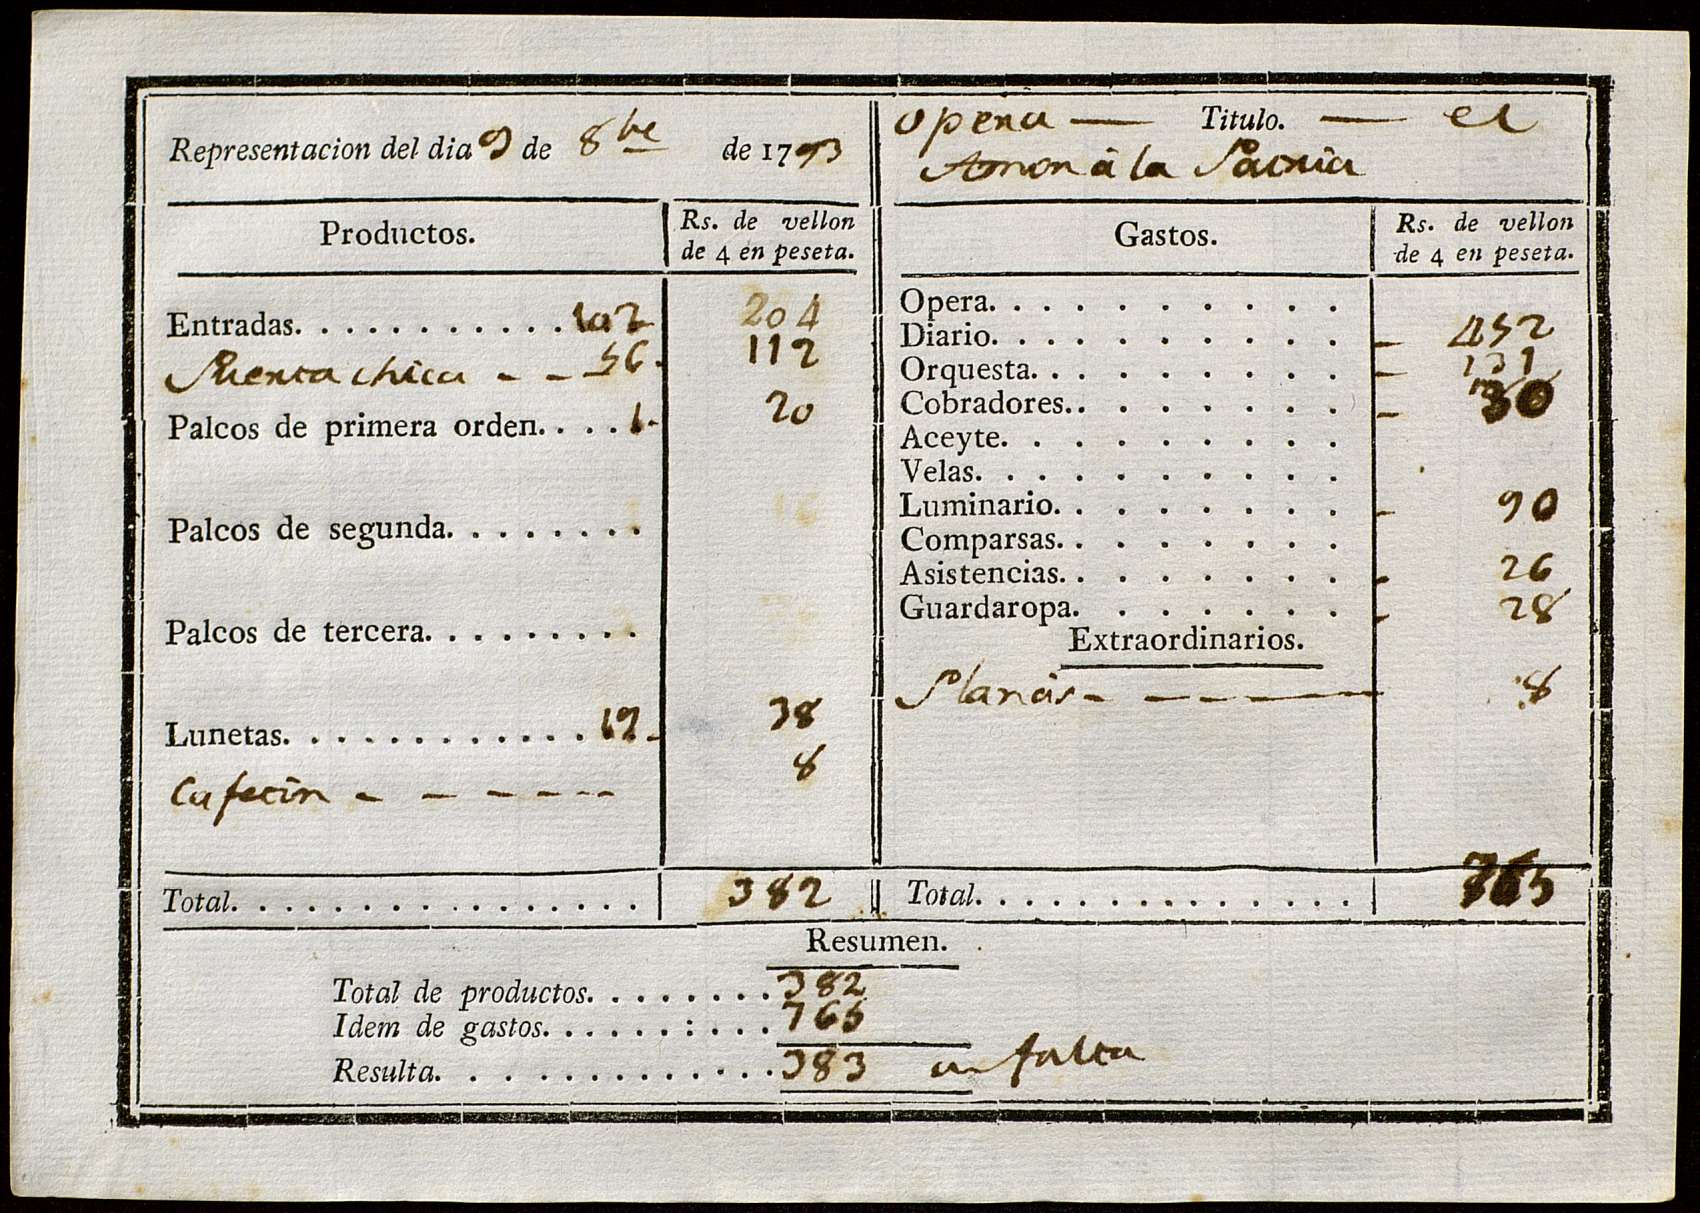 Representacion del dia 9 de 8bre de 1793
Opera — Titulo. — el
Amor à la Patria
Productos. Rs. de vellon de 4 en peseta.
Entradas. . . . . . . . . . . 102 204
Puerta chica - - - 56. 112
Palcos de primera orden. . . . 1. 20
Palcos de segunda. . . . . . . .
Palcos de tercera. . . . . . . . .
Lunetas. . . . . . . . . . . . 19. 38
Cafetin - - - - - - 8
Total. . . . . . . . . . . . . . . . 382
Gastos. Rs. de vellon de 4 en peseta.
Opera. . . . . . . . . . .
Diario. . . . . . . . . . . 452
Orquesta. . . . . . . . . . 131
Cobradores. . . . . . . . . 30
Aceyte. . . . . . . . . .
Velas. . . . . . . . . . .
Luminario. . . . . . . . . 90
Comparsas. . . . . . . . .
Asistencias. . . . . . . . . 26
Guardaropa. . . . . . . 28
Extraordinarios.
Planàs - - - - - - 8
Total. . . . . . . . . . . . . . . 765
Resumen.
Total de productos. . . . . . . . 382
Idem de gastos. . . . . . : . . . . 765
Resulta. . . . . . . . . . . . . 383 falta